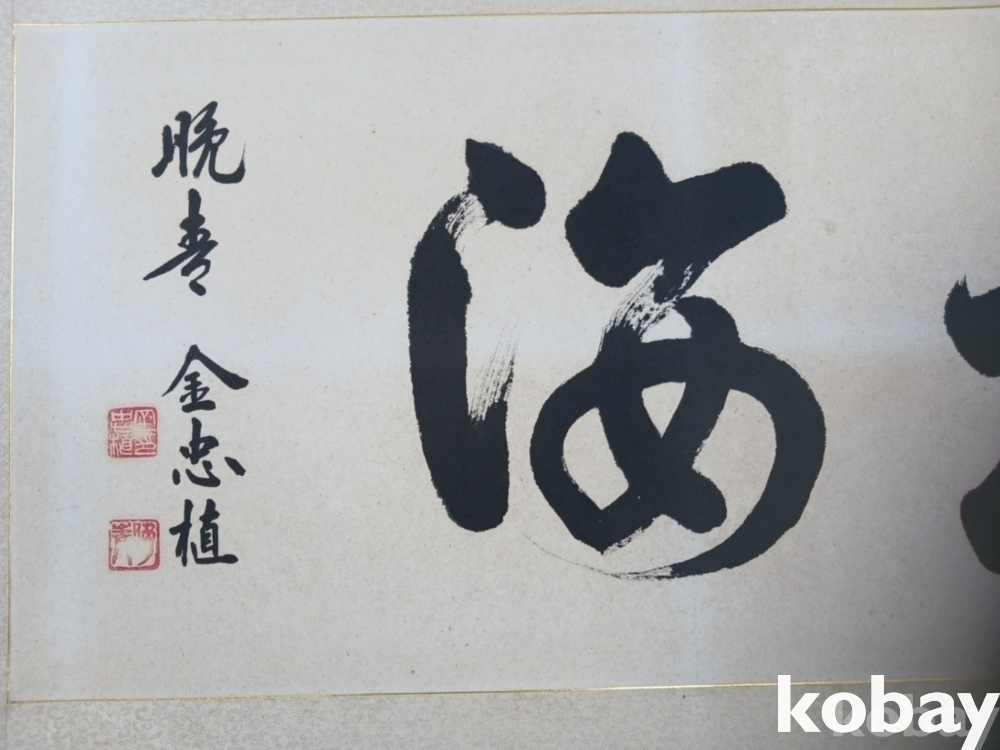 海
晩春
金忠植
kobay